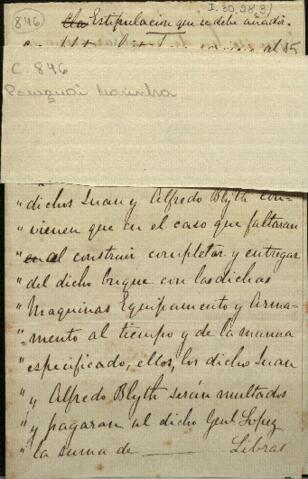 846
I-30,28,31
Cla Estipulacion que se debe añadir
al 15
C. 846
Paraguai Marinha
" dichos Juan y Alfredo Blyth con-
" vienen que en el caso que faltaran
" en el construir completar y entregar
" del dicho buque con las dichas
" Maquinas Equipamento y Arma-
" mento al tiempo y de la manera
" especificado, ellos, los dicho Juan
" y Alfredo Blyth serán multados
" y pagaran al dicho Genl Lopez
" la suma de ——— Libras